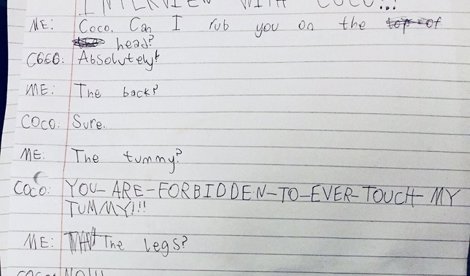 INTERVIEW WITH COCO!!!
ME: Coco, Can I rub you on the top of
head?
COCO: Absolutely!
ME: The back?
COCO: Sure.
ME: The tummy?
COCO: YOU-ARE-FORBIDDEN-TO-EVER-TOUCH-MY
TUMMY!!!
ME: The legs?
COCO: NO!!!